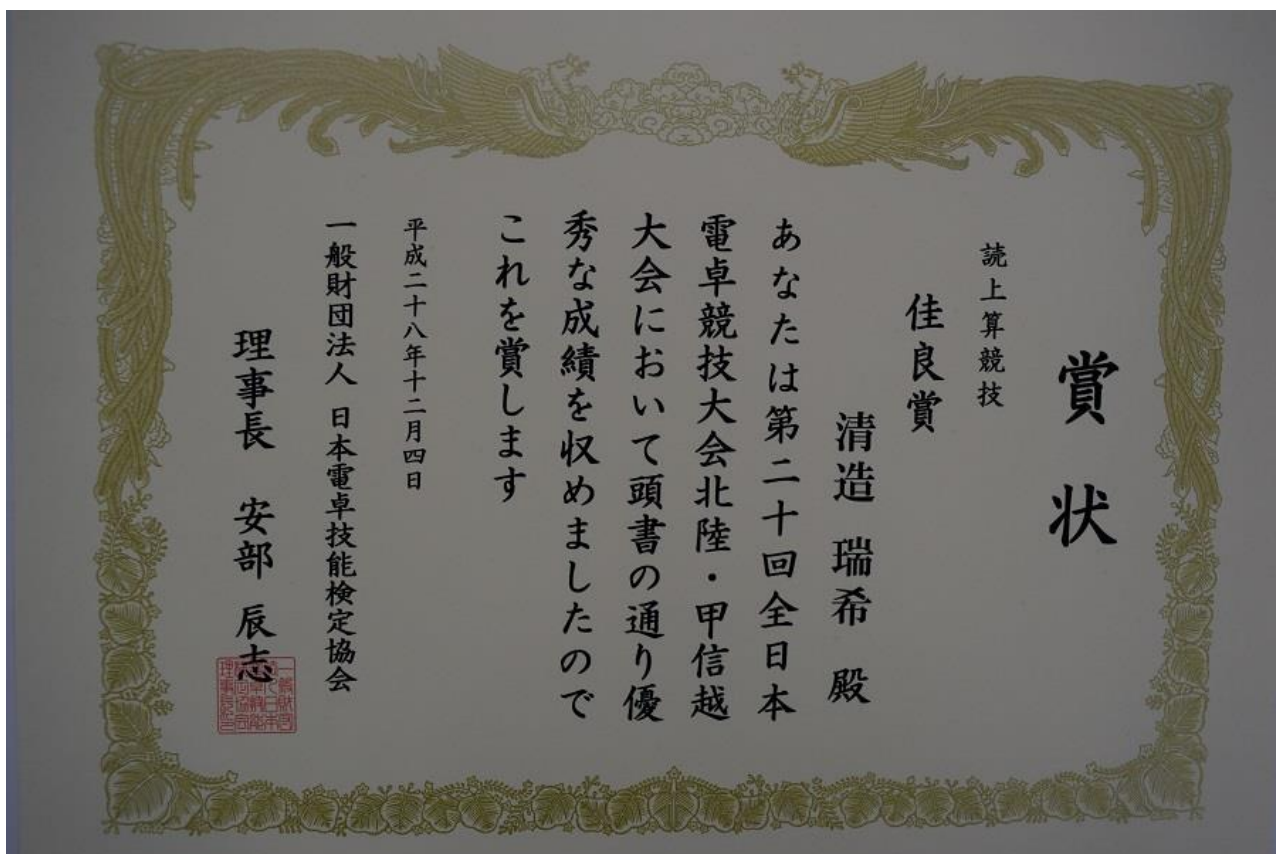 賞状
読上算競技
佳良賞
清造 瑞希 殿
あなたは第二十回全日本
電卓競技大会北陸・甲信越
大会において頭書の通り優
秀な成績を収めましたので
これを賞します
平成二十八年十二月四日
一般財団法人 日本電卓技能検定協会
理事長 安部 辰志